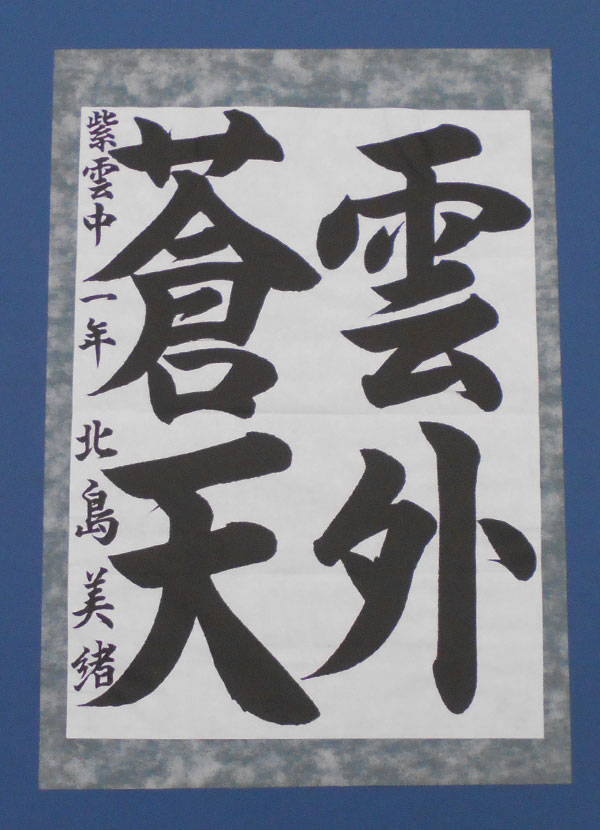 雲外
蒼天
紫雲中 一年 北島美緒